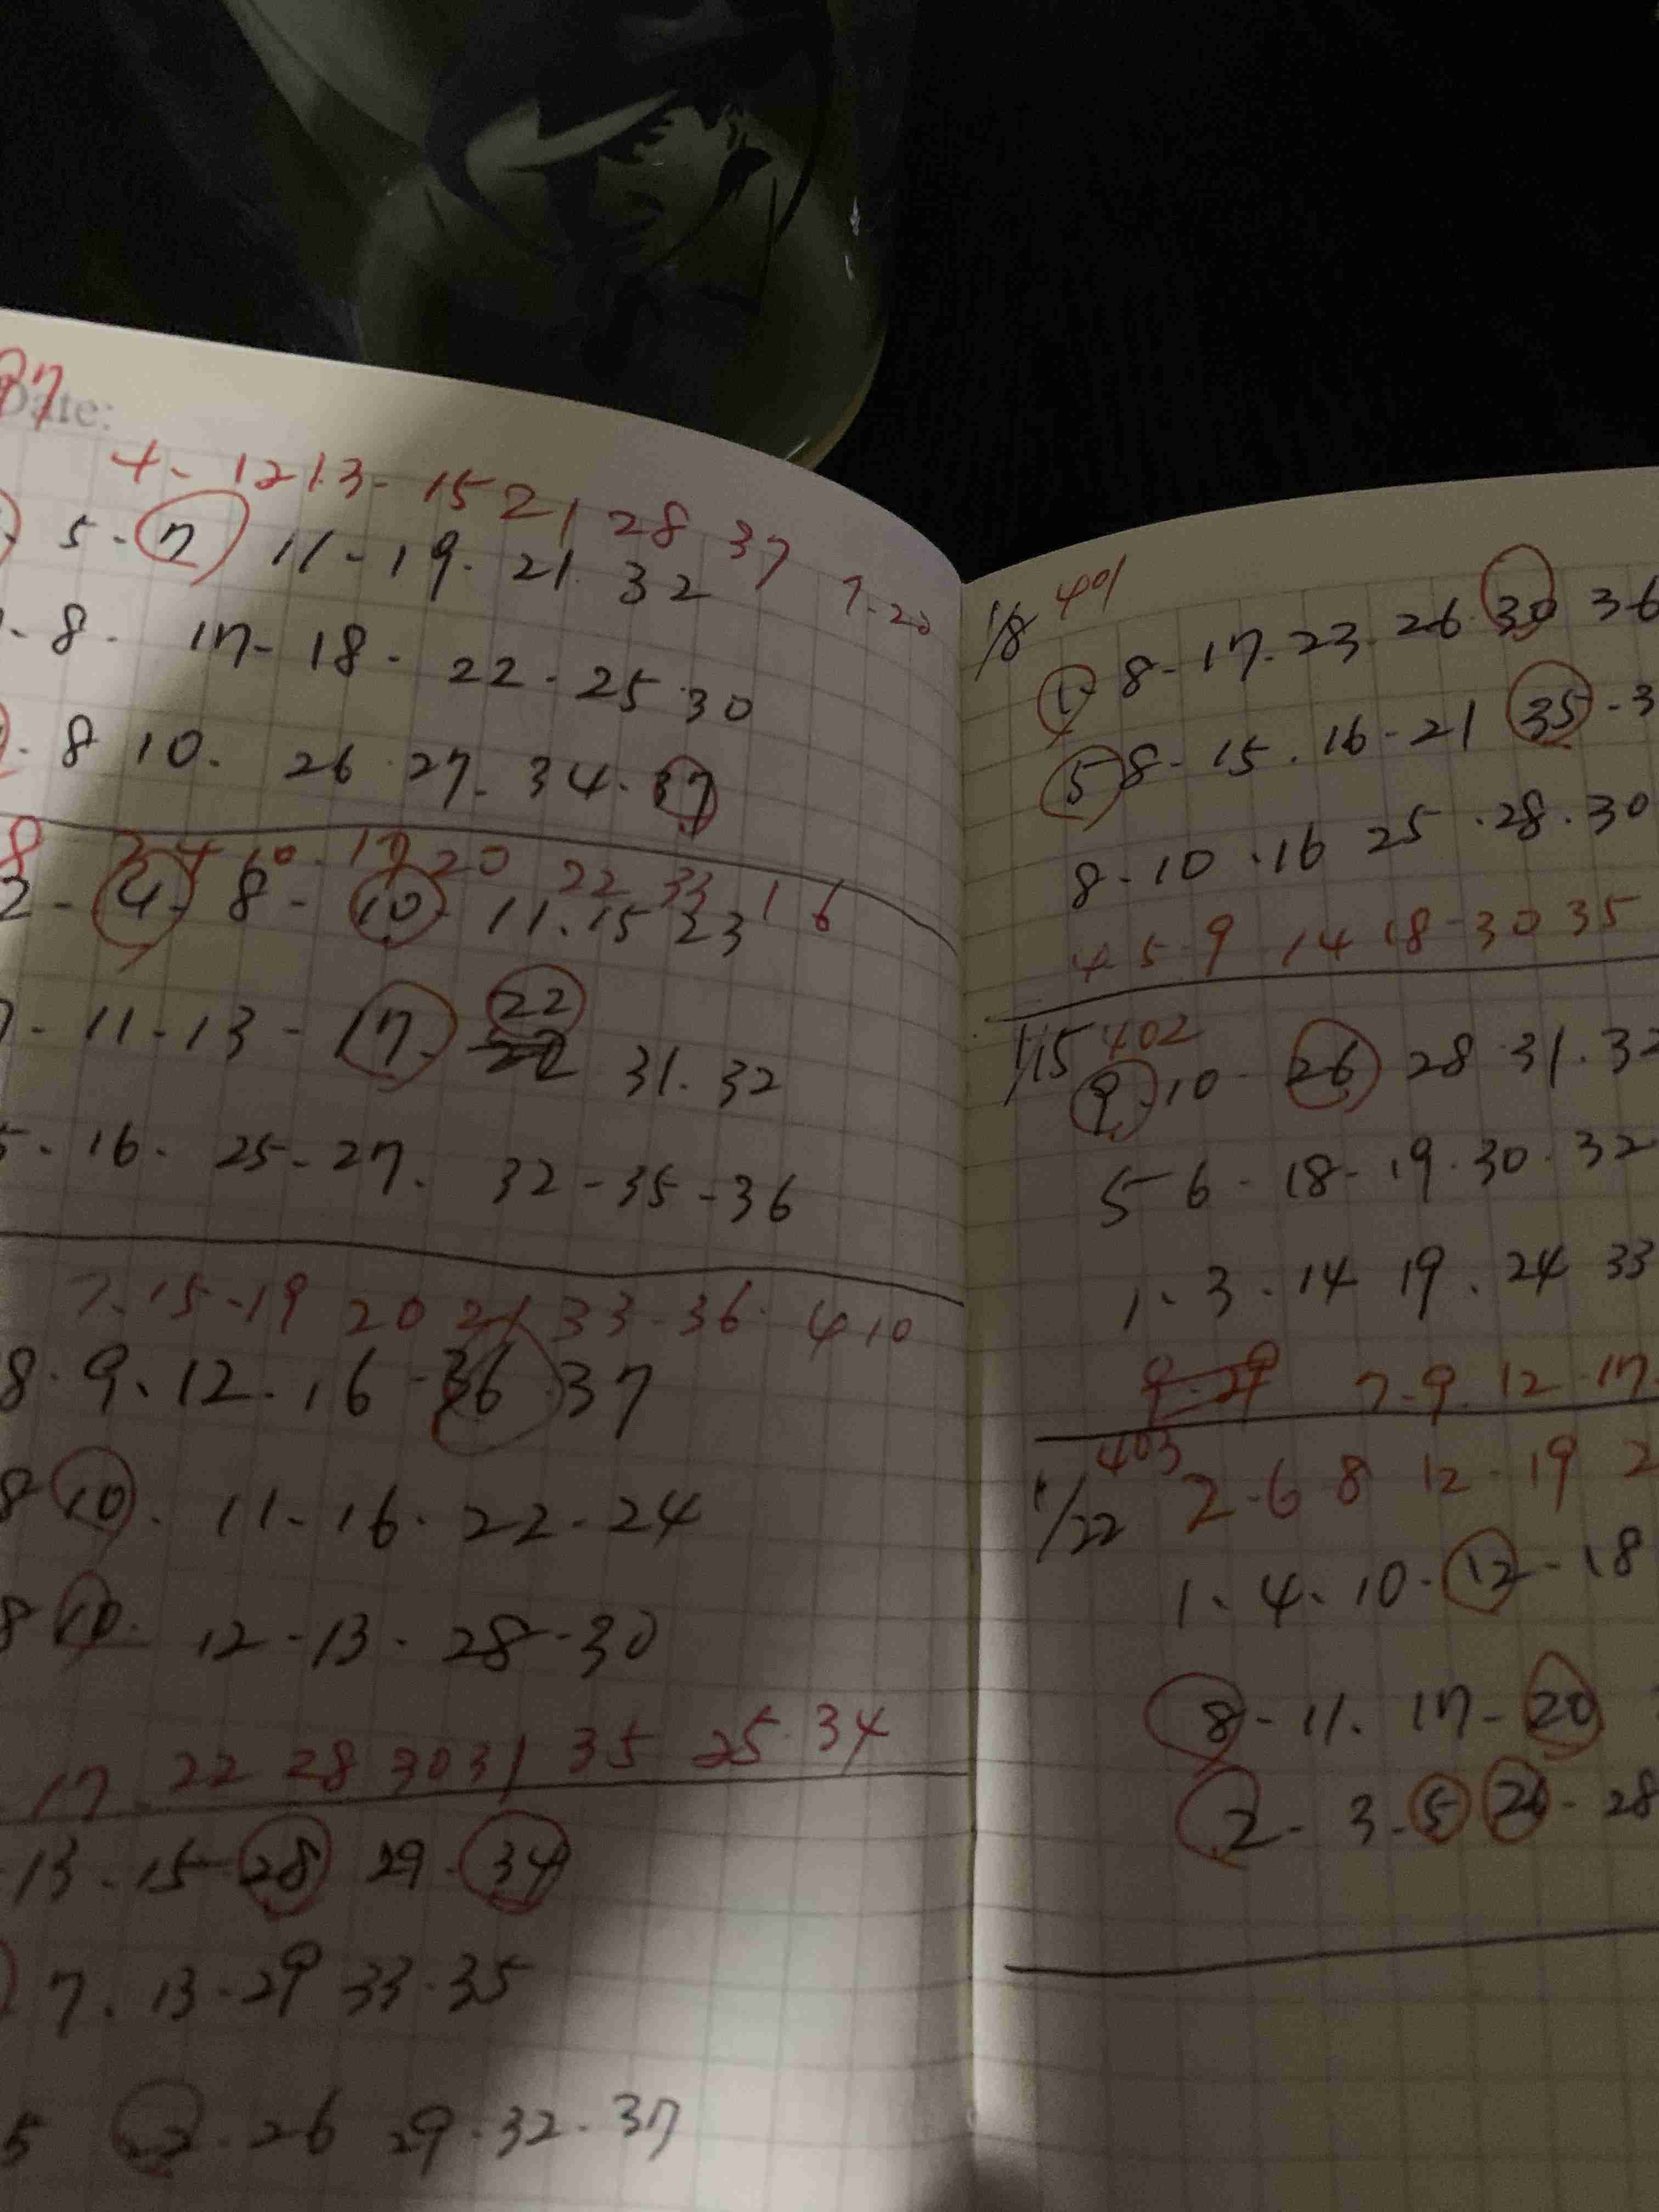 97
Date:
4-12 13-15 21 28 37 7-20
5-7 11-19.21.32
8-17-18-22-25 30
8 10. 26.27-34.37
8 3 4 10.17 20 22 33 1 6
2-4-8-10-11.15 23
11-13-17. 22 31.32
5-16.25-27.32-35-36
7.15-19 20 21 33-36.4 10
8.9.12.16-36.37
8 10.11-16.22-24
8 10.12-13.28-30
17.22 28 30 31 35 25.34
13.15-28 29-34
7.13-29 33.35
5 26 29.32.37
1/8 401
1-8-17.23.26.30 36
5 8-15.16-21 35-3
8-10.16 25.28.30
4 5-9 14 18-30 35
1/15 402
9.10-26 28.31.32
5 6-18-19.30.32
1.3.14 19.24 33
7-9.12-17.
1/22 403 2-6 8 12-19 2
1.4.10-12-18
8-11.17-20
2-3-5 26-28